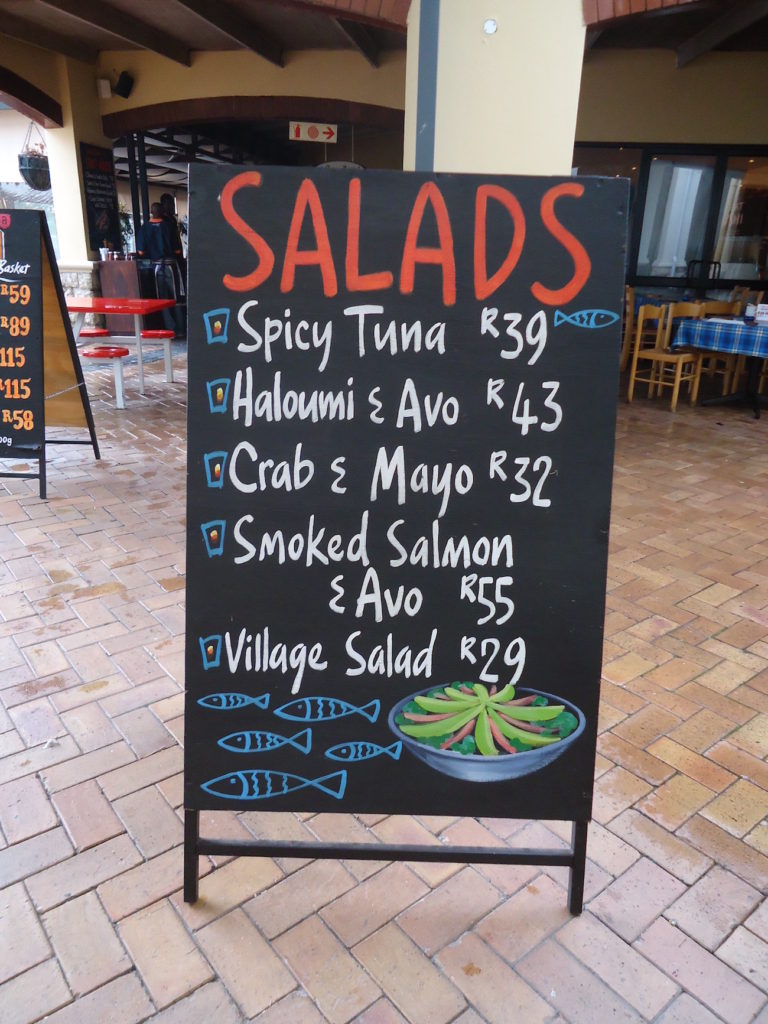 SALADS
Spicy Tuna R39
Haloumi & Avo R43
Crab & Mayo R32
Smoked Salmon
& Avo R55
Village Salad R29
Basket
R59
R89
115
R115
R58